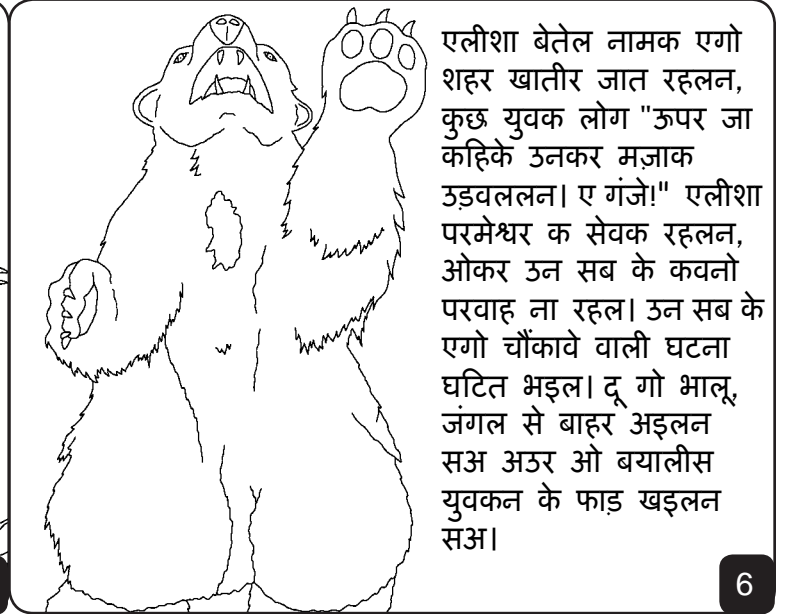 एलीशा बेतेल नामक एगो
शहर खातीर जात रहलन,
कुछ युवक लोग "ऊपर जा
कहिके उनकर मज़ाक
उड़वललन। ए गंजे!" एलीशा
परमेश्वर क सेवक रहलन,
ओकर उन सब के कवनो
परवाह ना रहल। उन सब के
एगो चौंकावे वाली घटना
घटित भइल। दू गो भालू,
जंगल से बाहर अइलन
सअ अउर ओ बयालीस
युवकन के फाड़ खइलन
सअ।
6